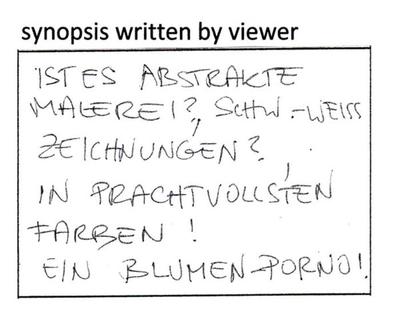 synopsis written by viewer
IST ES ABSTRAKTE
MALEREI?, SCHW.-WEISS
ZEICHNUNGEN?
IN PRACHTVOLLSTEN
FARBEN !
EIN BLUMEN-PORNO!